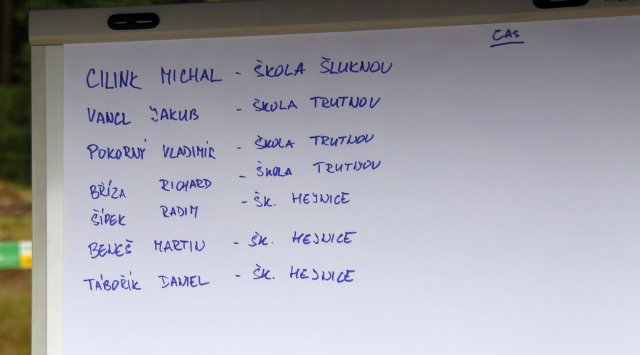 ČAS
CILINK MICHAL - ŠKOLA ŠLUKNOV
VANCL JAKUB - ŠKOLA TRUTNOV
POKORNÝ VLADIMÍR - ŠKOLA TRUTNOV
BŘÍZA RICHARD - ŠKOLA TRUTNOV
ŠÍDEK RADIM - ŠK. HEJNICE
BENEŠ MARTIN - ŠK. HEJNICE
TÁBOŘÍK DANIEL - ŠK. HEJNICE